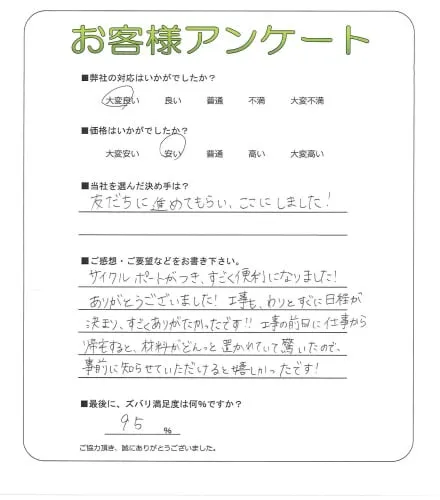 お客様アンケート
■弊社の対応はいかがでしたか？
大変良い 良い 普通 不満 大変不満
■価格はいかがでしたか？
大変安い 安い 普通 高い 大変高い
■当社を選んだ決め手は？
友だちに進めてもらい、ここにしました！
■ご感想・ご要望などをお書き下さい。
サイクルポートがつき、すごく便利になりました！
ありがとうございました！工事も、わりとすぐに日程が
決まり、すごくありがたかったです!!工事の前日に仕事から
帰宅すると、材料がどんっと置かれていて驚いたので、
事前に知らせていただけると嬉しかったです！
■最後に、ズバリ満足度は何％ですか？
95 ％
ご協力頂き、誠にありがとうございました。